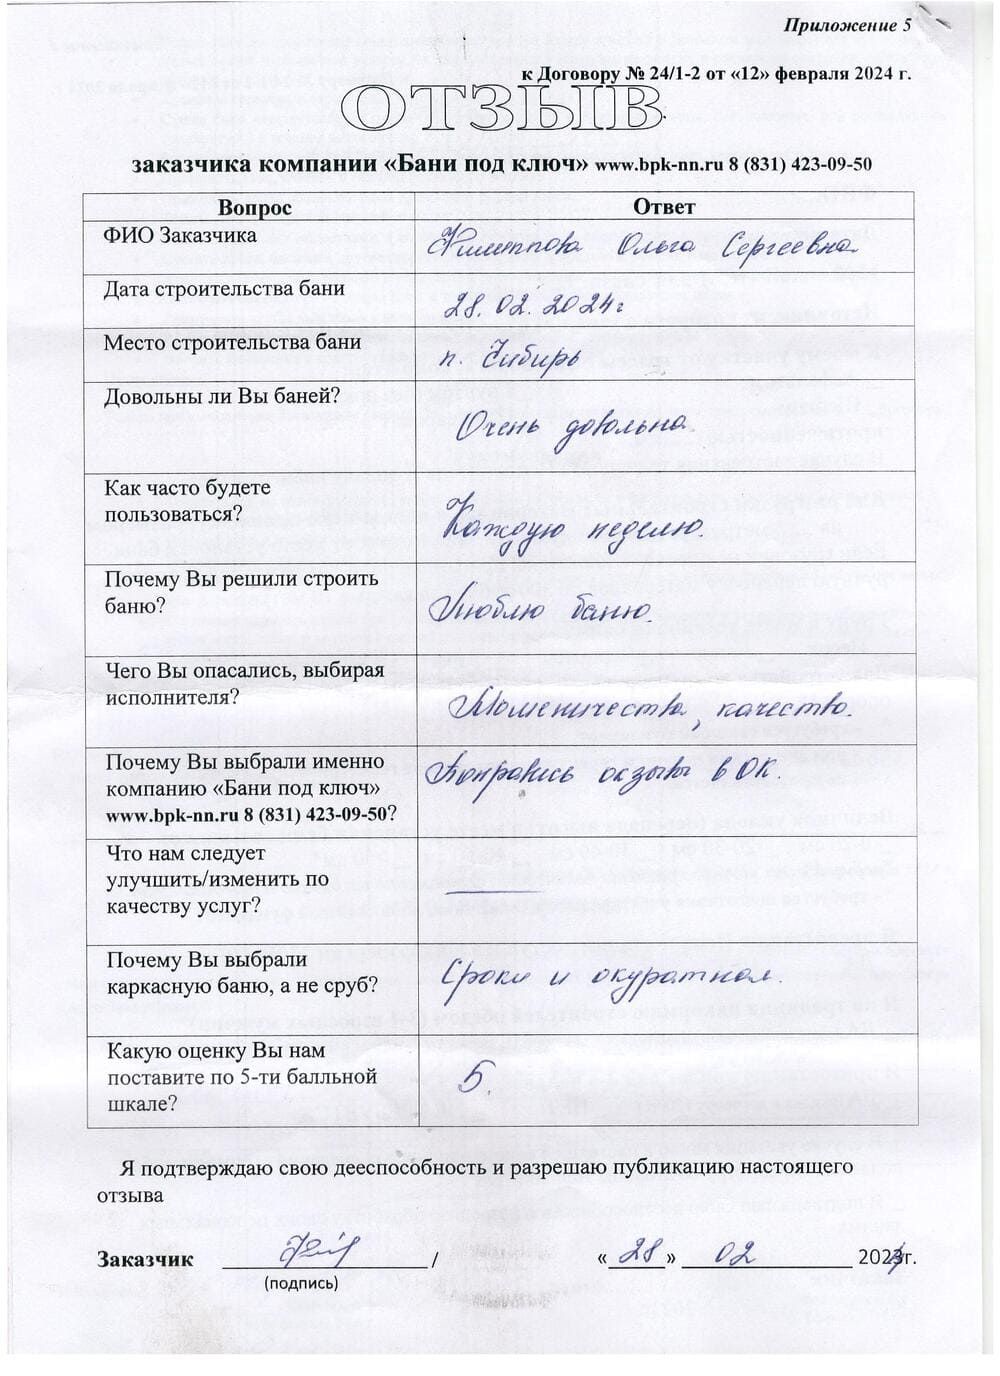 Приложение 5
к Договору № 24/1-2 от «12» февраля 2024 г.
ОТЗЫВ
заказчика компании «Бани под ключ» www.bpk-nn.ru 8 (831) 423-09-50
Вопрос Ответ
ФИО Заказчика Филиппова Ольга Сергеевна
Дата строительства бани 28.02.2024г
Место строительства бани п. Сибирь
Довольны ли Вы баней? Очень довольна
Как часто будете
пользоваться? Каждую неделю.
Почему Вы решили строить
баню? Люблю баню.
Чего Вы опасались, выбирая
исполнителя? Мошеничества, качество.
Почему Вы выбрали именно Понравись отзывы в ОК.
компанию «Бани под ключ»
www.bpk-nn.ru 8 (831) 423-09-50?
Что нам следует
улучшить/изменить по
качеству услуг?
Почему Вы выбрали
каркасную баню, а не сруб? Сроки и окуратном.
Какую оценку Вы нам
поставите по 5-ти балльной 5.
шкале?
Я подтверждаю свою дееспособность и разрешаю публикацию настоящего
отзыва
Заказчик / «28» 02 2024г.
(подпись)